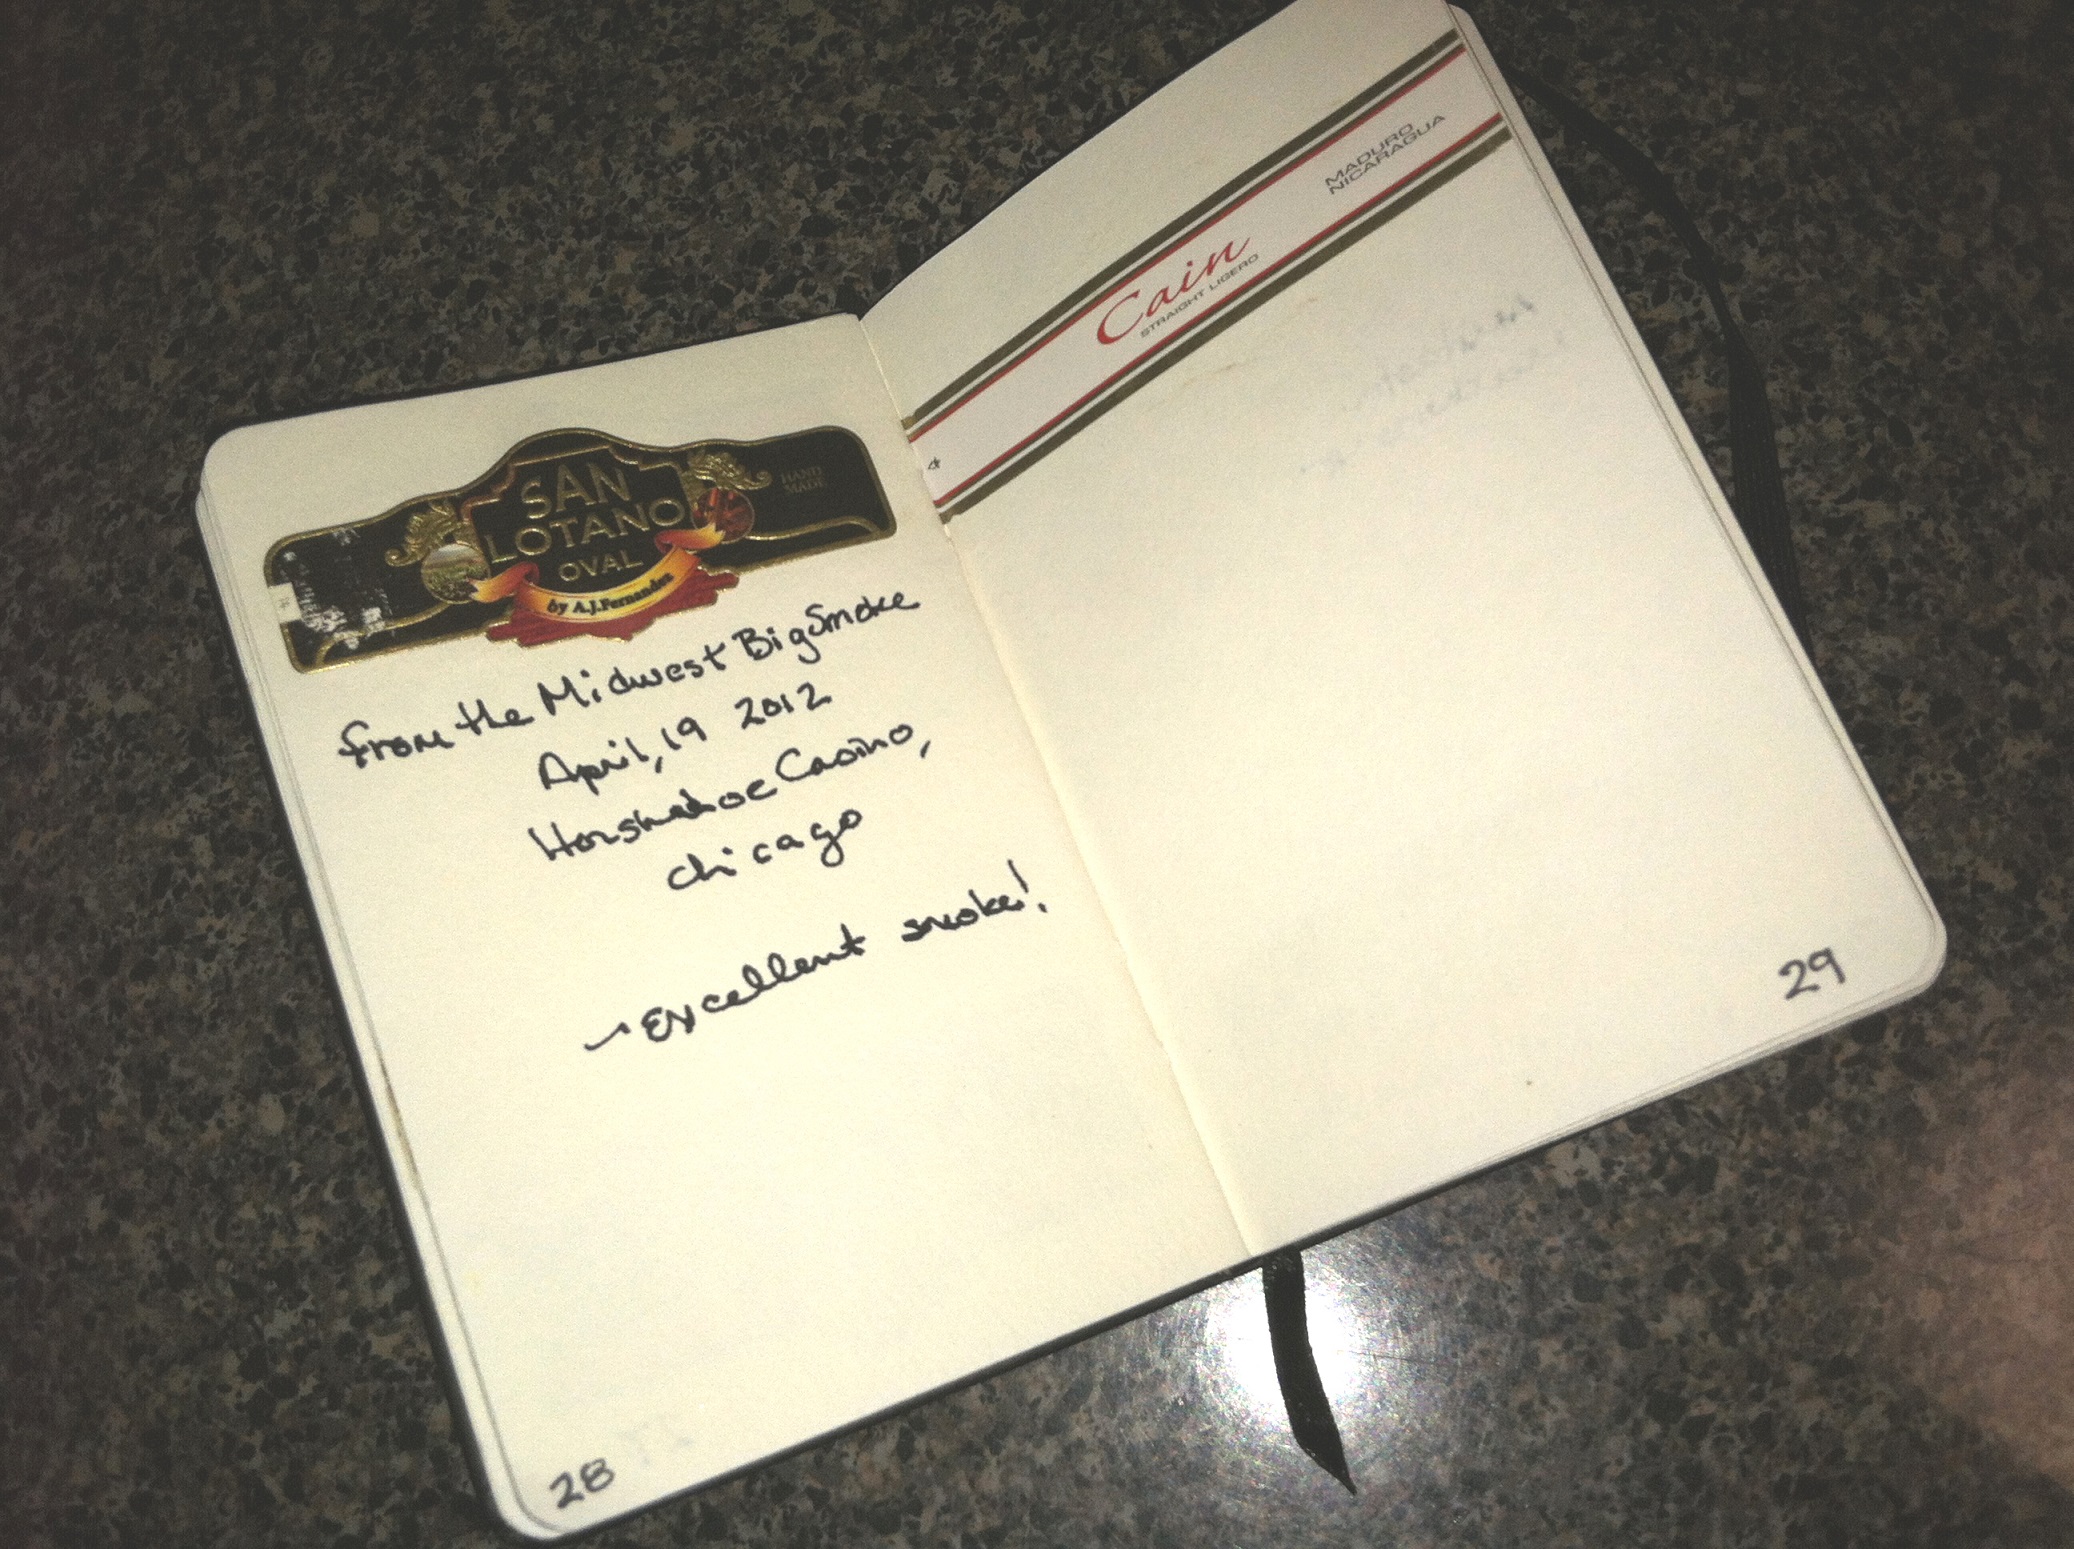 SAN
LOTANO
OVAL
by A.J.Fernandez
HAND
MADE
from the Midwest BigSmoke
April, 19 2012
Horsheshoe Casino,
Chicago
Excellent smoke!
28
Cain
STRAIGHT LIGERO
MADURO
NICARAGUA
29